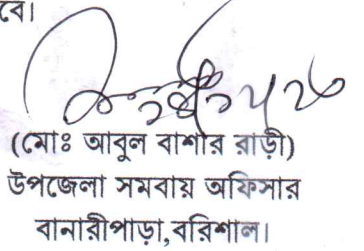 বে।
(মোঃ আবুল বাশার রাড়ী)
উপজেলা সমবায় অফিসার
বানারীপাড়া,বরিশাল।